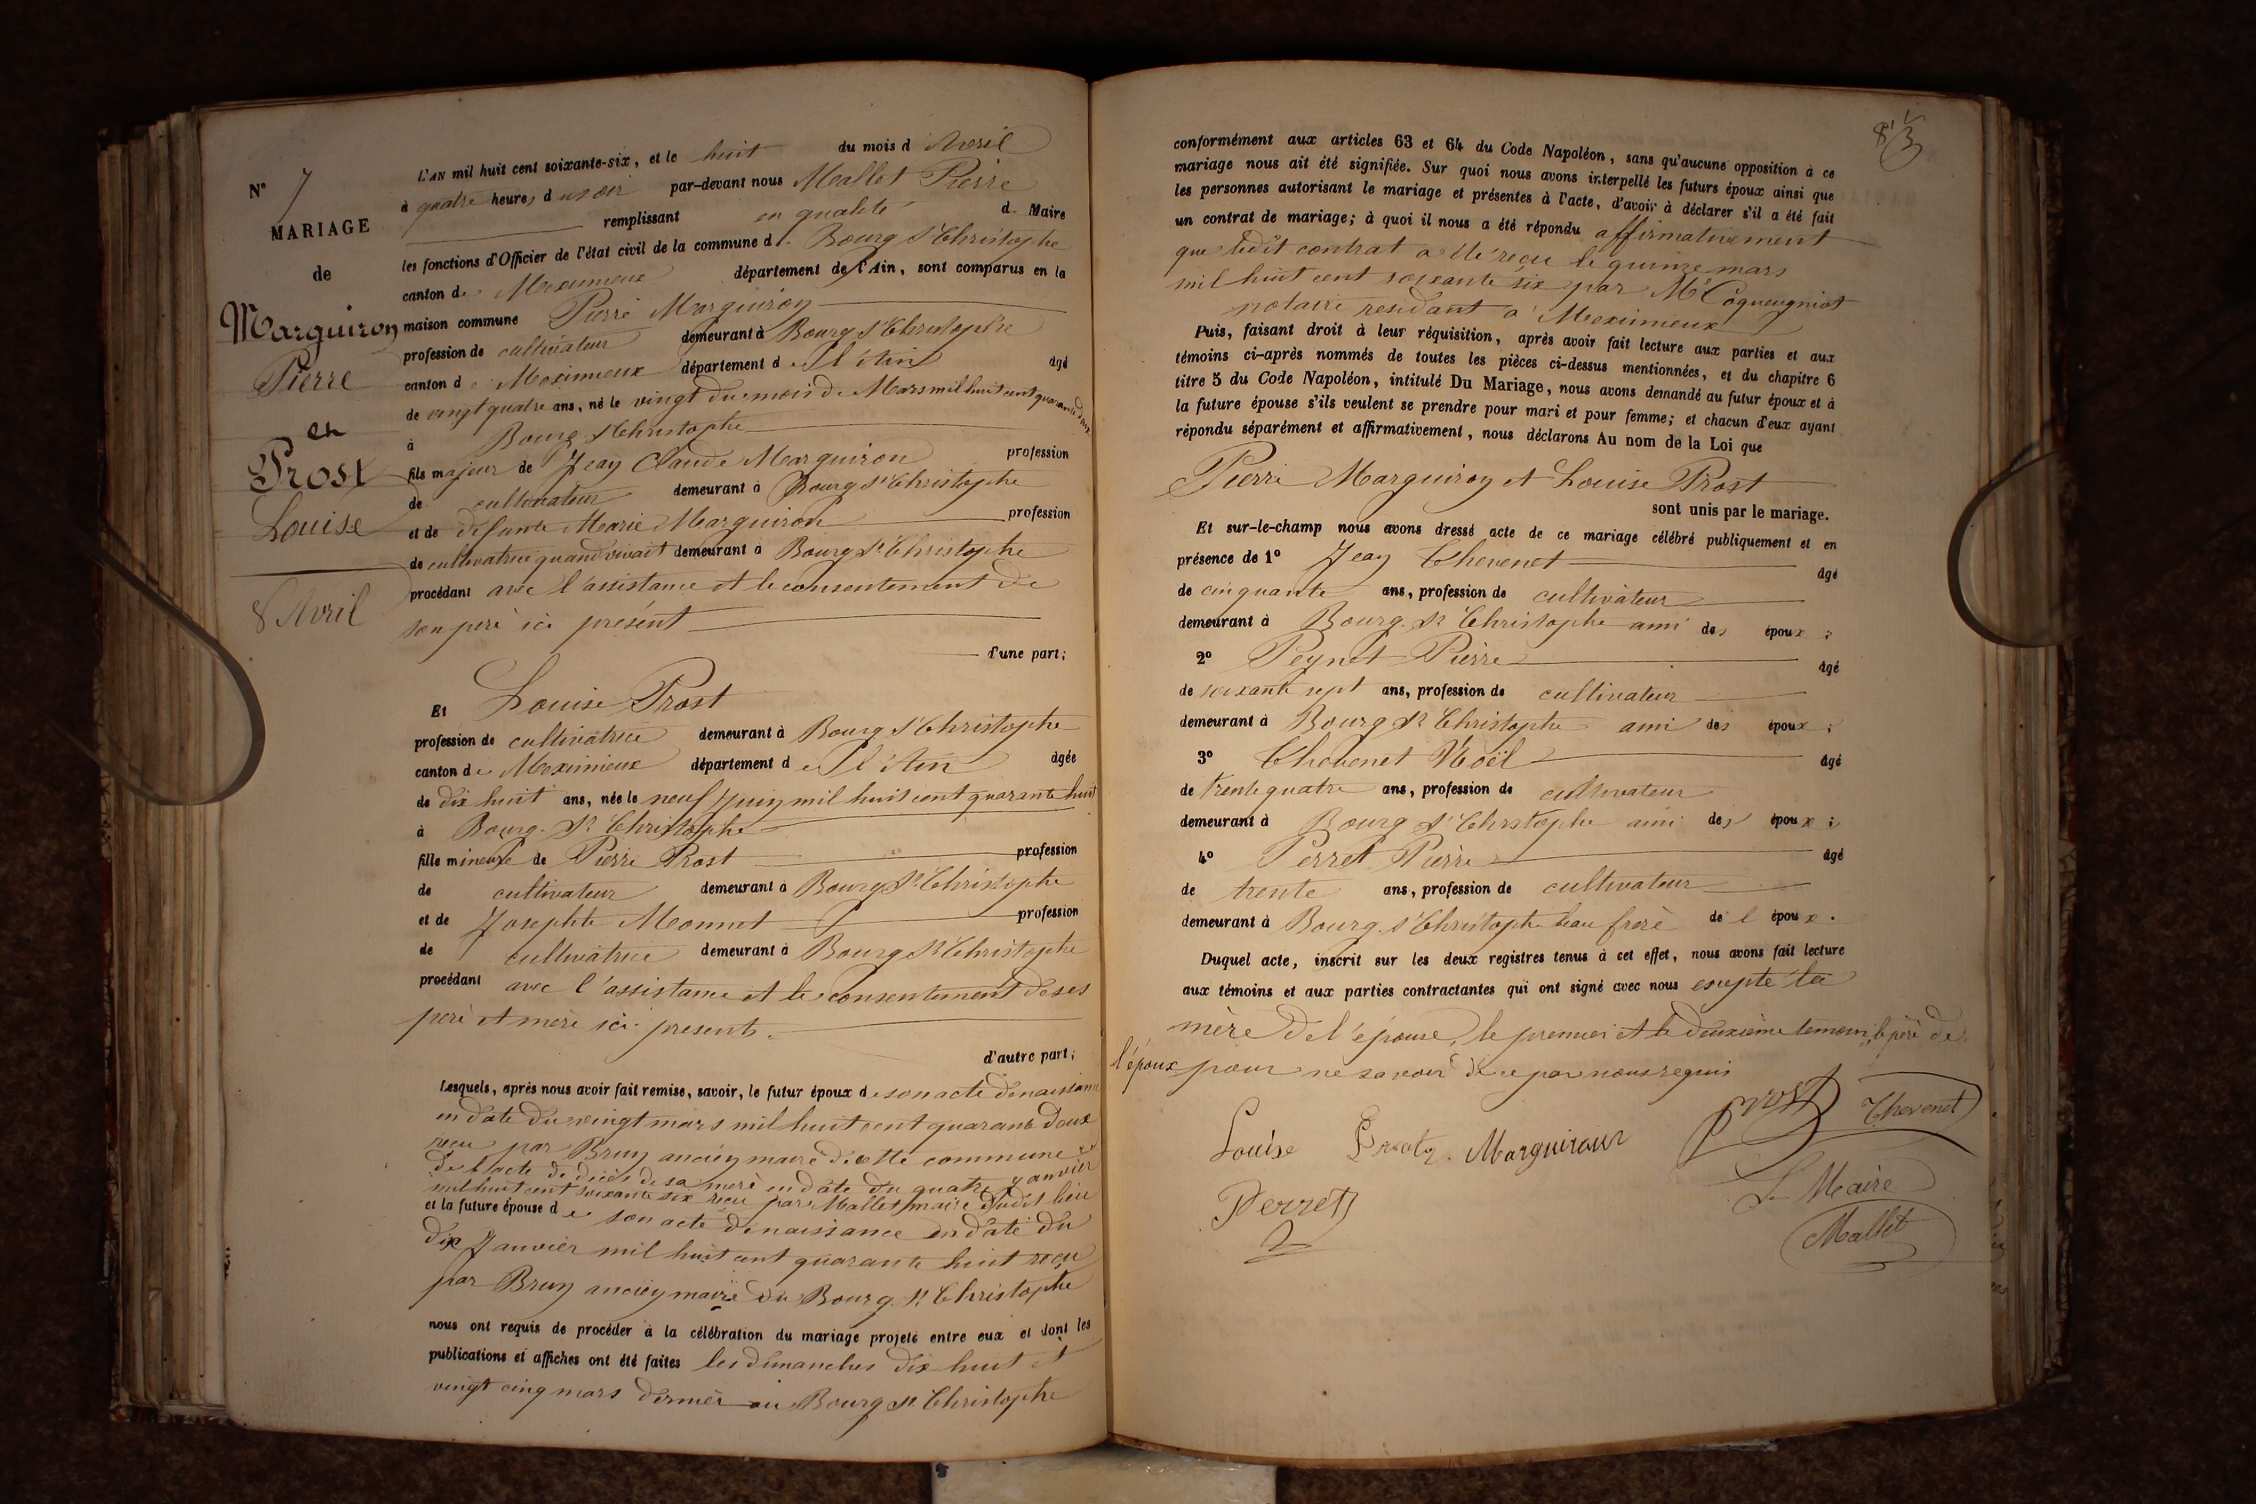 N° 7
MARIAGE
de
Marguiron
Pierre
et
Prost
Louise
8 Avril
L'AN mil huit cent soixante-six, et le huit du mois d'Avril
à quatre heures du soir par-devant nous Mallet Pierre
remplissant en qualité de Maire
les fonctions d'Officier de l'état civil de la commune d. Bourg St Christophe
canton de Meximieux département de l'Ain, sont comparus en la
maison commune Pierre Marguiron
profession de cultivateur demeurant à Bourg St Christophe
canton de Meximieux département de l'Ain âgé
de vingt quatre ans, né le vingt du mois de Mars mil huit cent quarante deux
à Bourg St Christophe
fils majeur de Jean Claude Marguiron profession
de cultivateur demeurant à Bourg St Christophe
et de défunte Marie Marguiron profession
de cultivatrice quand vivait demeurant à Bourg St Christophe
procédant avec l'assistance et le consentement de
son père ici présent
d'une part;
Et Louise Prost
profession de cultivatrice demeurant à Bourg St Christophe
canton de Meximieux département de l'Ain âgée
de dix huit ans, née le neuf Juin mil huit cent quarante huit
à Bourg St Christophe
fille mineure de Pierre Prost profession
de cultivateur demeurant à Bourg St Christophe
et de Josephte Monnet profession
de cultivatrice demeurant à Bourg St Christophe
procédant avec l'assistance et le consentement de ses
père et mère ici présents.
d'autre part;
Lesquels, après nous avoir fait remise, savoir, le futur époux de son acte de naissance
en date du vingt mars mil huit cent quarante deux
reçu par Brun ancien maire de cette commune et
de l'acte de décès de sa mère en date du quatre janvier
mil huit cent soixante six reçu par Mallet maire dudit lieu
et la future épouse de son acte de naissance en date du
dix Janvier mil huit cent quarante huit reçu
par Brun ancien maire du Bourg St Christophe
nous ont requis de procéder à la célébration du mariage projeté entre eux et dont les
publications et affiches ont été faites les dimanches dix huit et
vingt cinq mars dernier au Bourg St Christophe
conformément aux articles 63 et 64 du Code Napoléon, sans qu'aucune opposition à ce
mariage nous ait été signifiée. Sur quoi nous avons interpellé les futurs époux ainsi que
les personnes autorisant le mariage et présentes à l'acte, d'avoir à déclarer s'il a été fait
un contrat de mariage; à quoi il nous a été répondu affirmativement
que ledit contrat a été reçu le quinze mars
mil huit cent soixante six par Me Coqueugniot
notaire résidant à Meximieux
Puis, faisant droit à leur réquisition, après avoir fait lecture aux parties et aux
témoins ci-après nommés de toutes les pièces ci-dessus mentionnées, et du chapitre 6
titre 5 du Code Napoléon, intitulé Du Mariage, nous avons demandé au futur époux et à
la future épouse s'ils veulent se prendre pour mari et pour femme; et chacun d'eux ayant
répondu séparément et affirmativement, nous déclarons Au nom de la Loi que
Pierre Marguiron et Louise Prost
sont unis par le mariage.
Et sur-le-champ nous avons dressé acte de ce mariage célébré publiquement et en
présence de 1° Jean Thevenet âgé
de cinquante ans, profession de cultivateur
demeurant à Bourg St Christophe ami des époux;
2° Peynet Pierre âgé
de soixante sept ans, profession de cultivateur
demeurant à Bourg St Christophe ami des époux;
3° Thevenet Noël âgé
de trente quatre ans, profession de cultivateur
demeurant à Bourg St Christophe ami des époux;
4° Perret Pierre âgé
de trente ans, profession de cultivateur
demeurant à Bourg St Christophe beau frère de l'époux.
Duquel acte, inscrit sur les deux registres tenus à cet effet, nous avons fait lecture
aux témoins et aux parties contractantes qui ont signé avec nous excepté la
mère de l'épouse, le premier et le deuxième témoin, le père de
l'époux pour ne savoir de ce par nous requis
Louise Prost Marguiron Prost Thevenet
Perret Le Maire
Mallet